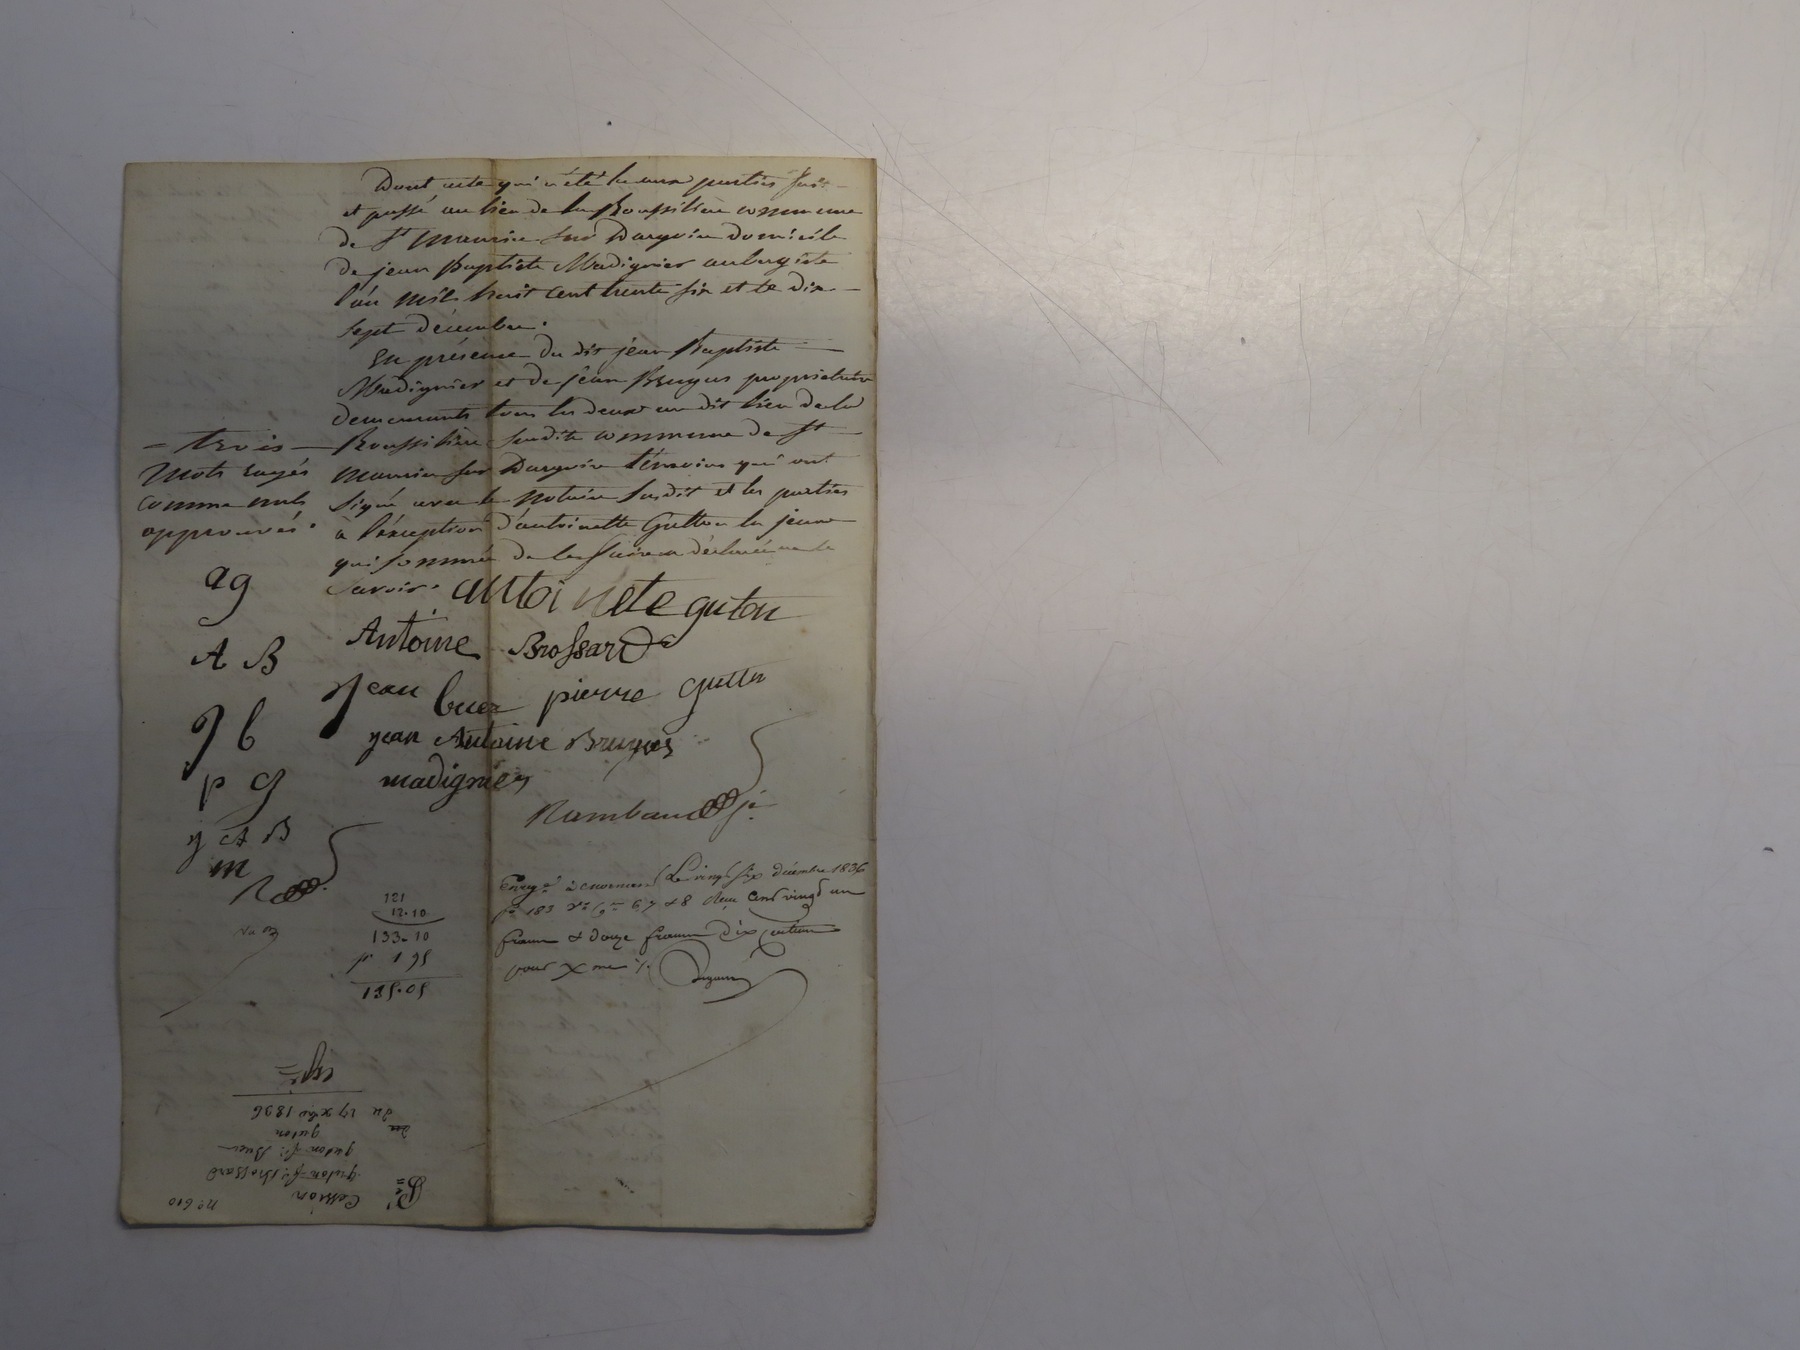 Dont acte qui a été lu aux parties fait
et passé au lieu de la Roussilière commune
de St Maurice sur Dargoire domicile
de jean Baptiste Madignier aubergiste
l'an mil huit cent trente six et le dix
sept décembre.
En présence du dit jean Baptiste
Madignier et de jean Bruyas propriétaire
demeurants tous les deux au dit lieu de la
Roussilière susdite commune de St
Maurice sur Dargoire témoins qui ont
signé avec le notaire susdit et les parties
à l'éxception d'antoinette Gutton la jeune
qui sommée de le faire a déclaré ne le
savoir.
— trois —
mots rayés
comme nuls
approuvés.
ag
A B
J b
p g
j A B
m
R
antoinete guton
Antoine Brossard
Jean buer pierre gutton
jean Antoine Bruyas
madignier
Rambaud je
Enregé à Le vingt six décembre 1836
fo 183 Vo Ce 6, 7 et 8 deux cent vingt un
francs et douze francs dix centimes
pour Xme /.
121
12.10
133.10
1 95
135.05
No 610
Cession
guton fe Brossard
guton fe Buer
guton
du 17 xbre 1836
Expé